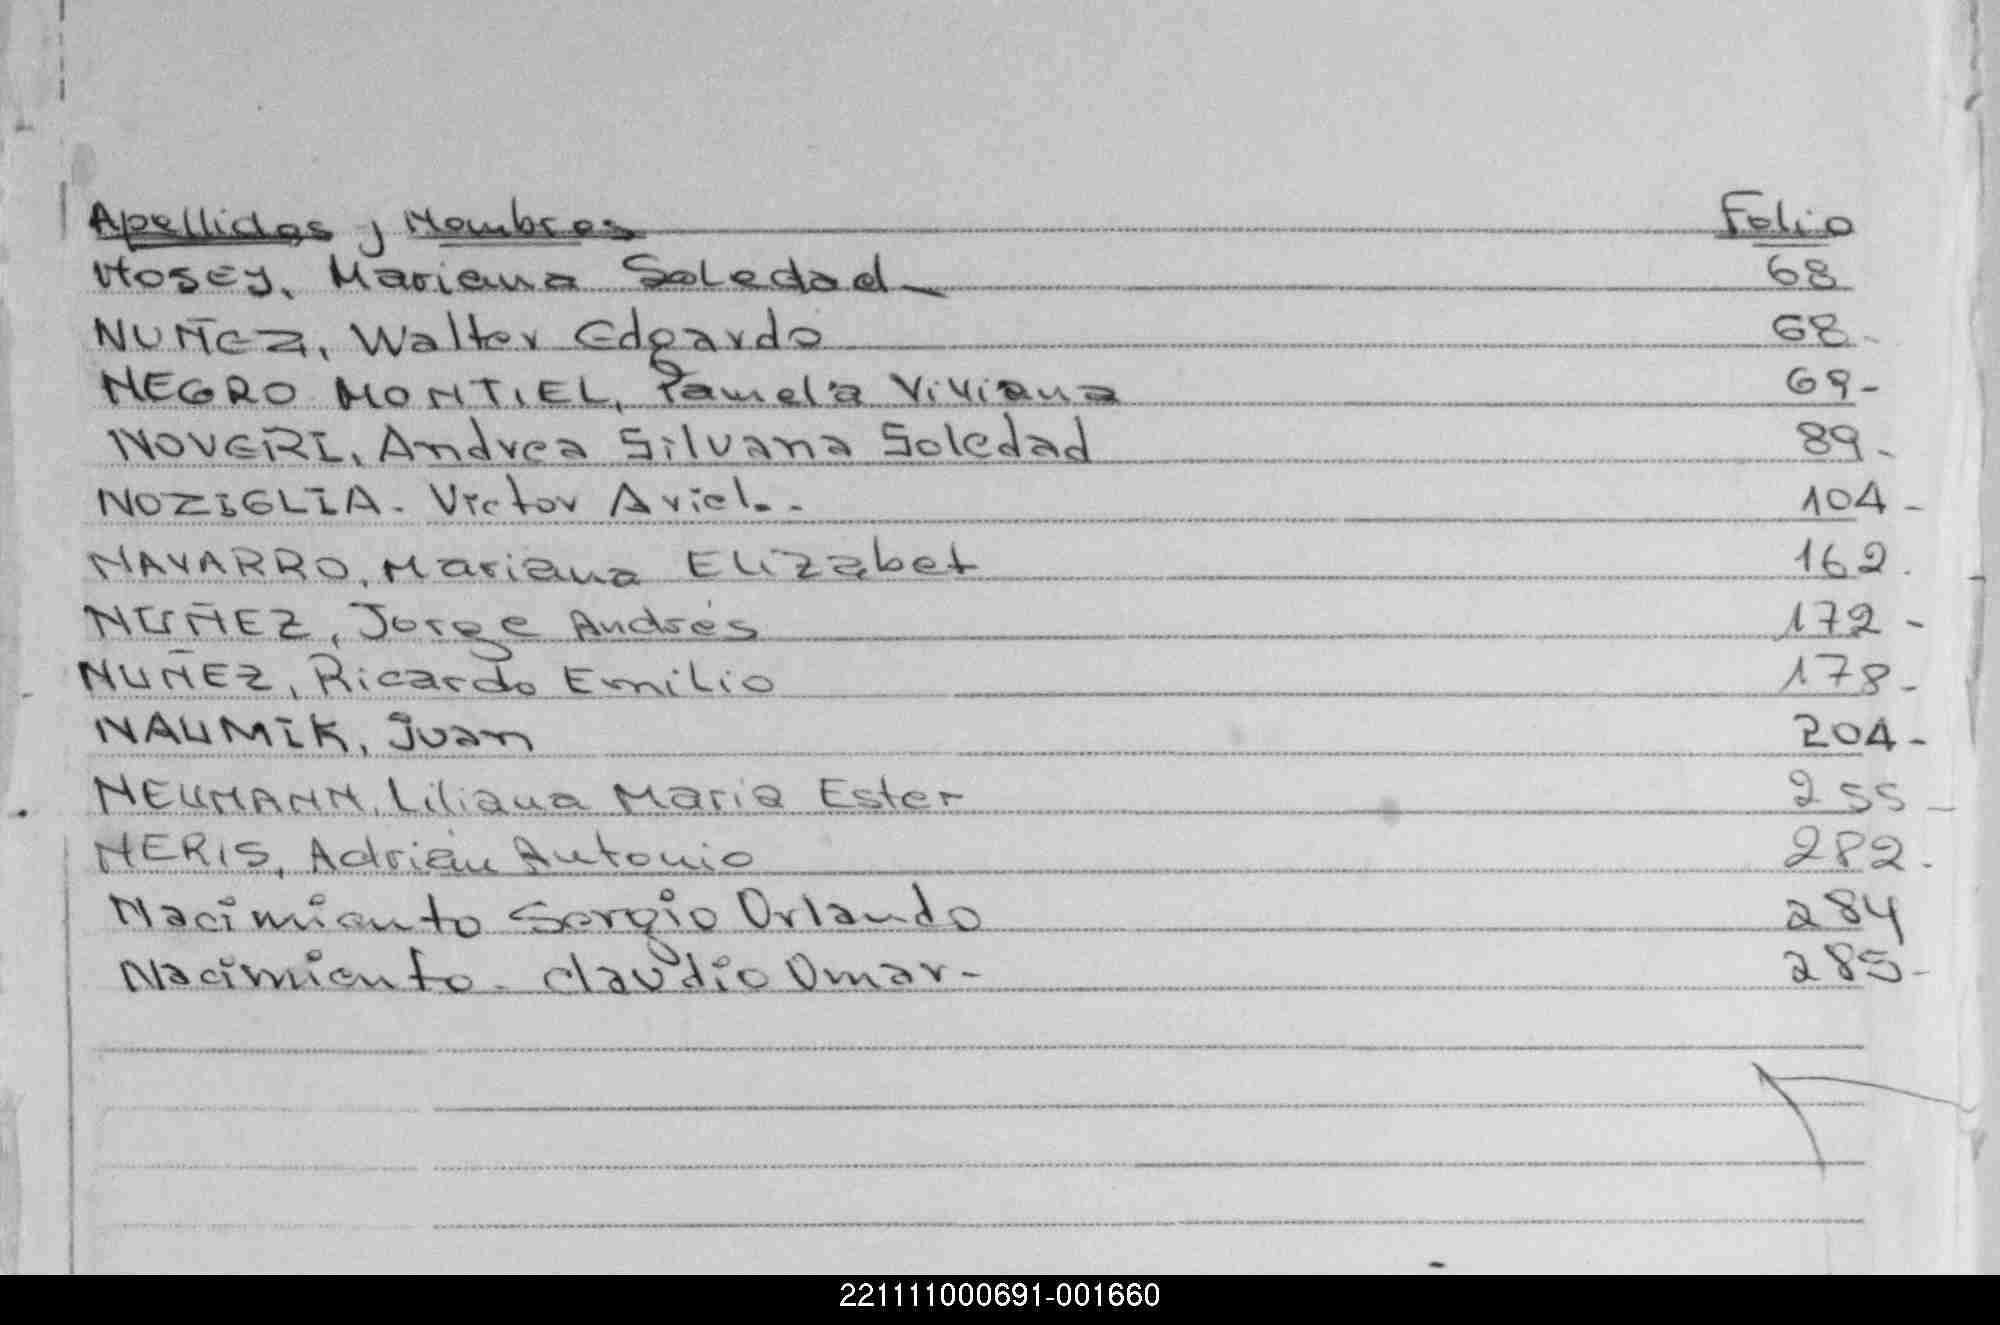 Apellidos y Nombres Folio
Nosey, Mariana Soledad - 68
NUÑEZ, Walter Edgardo 68-
NEGRO MONTIEL, Pamela Viviana 69-
NOVERI, Andrea Silvana Soledad 89-
NOZIGLIA- Victor Ariel.- 104-
NAVARRO, Mariana Elizabet 162.
NUÑEZ, Jorge Andrés 172-
NUÑEZ, Ricardo Emilio 178-
NAUMIK, Juan 204-
NEUMANN, Liliana Maria Ester 255-
NERIS, Adrián Antonio 282.
Nacimiento Sergio Orlando 284
Nacimiento- Claudio Omar- 285-
221111000691-001660